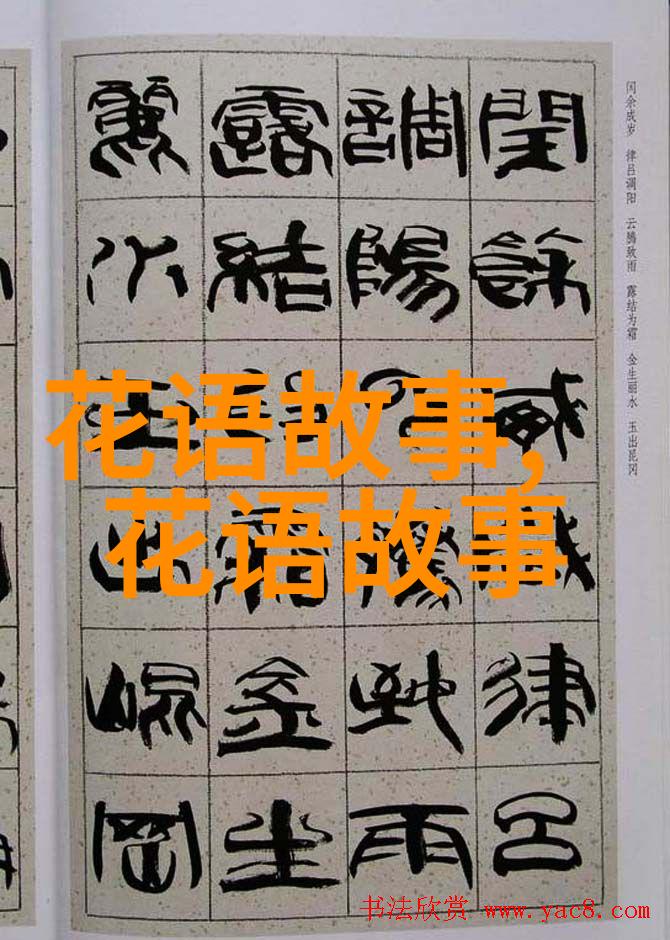 闰余成岁 律吕调阳 云腾致雨 露结为霜 金生丽水 玉出昆冈
閏餘成歲律呂
調陽云騰致雨
露結為霜金生
麗水玉出崐岡
花语故事,
花语故事
书法欣赏 www.yac8.com